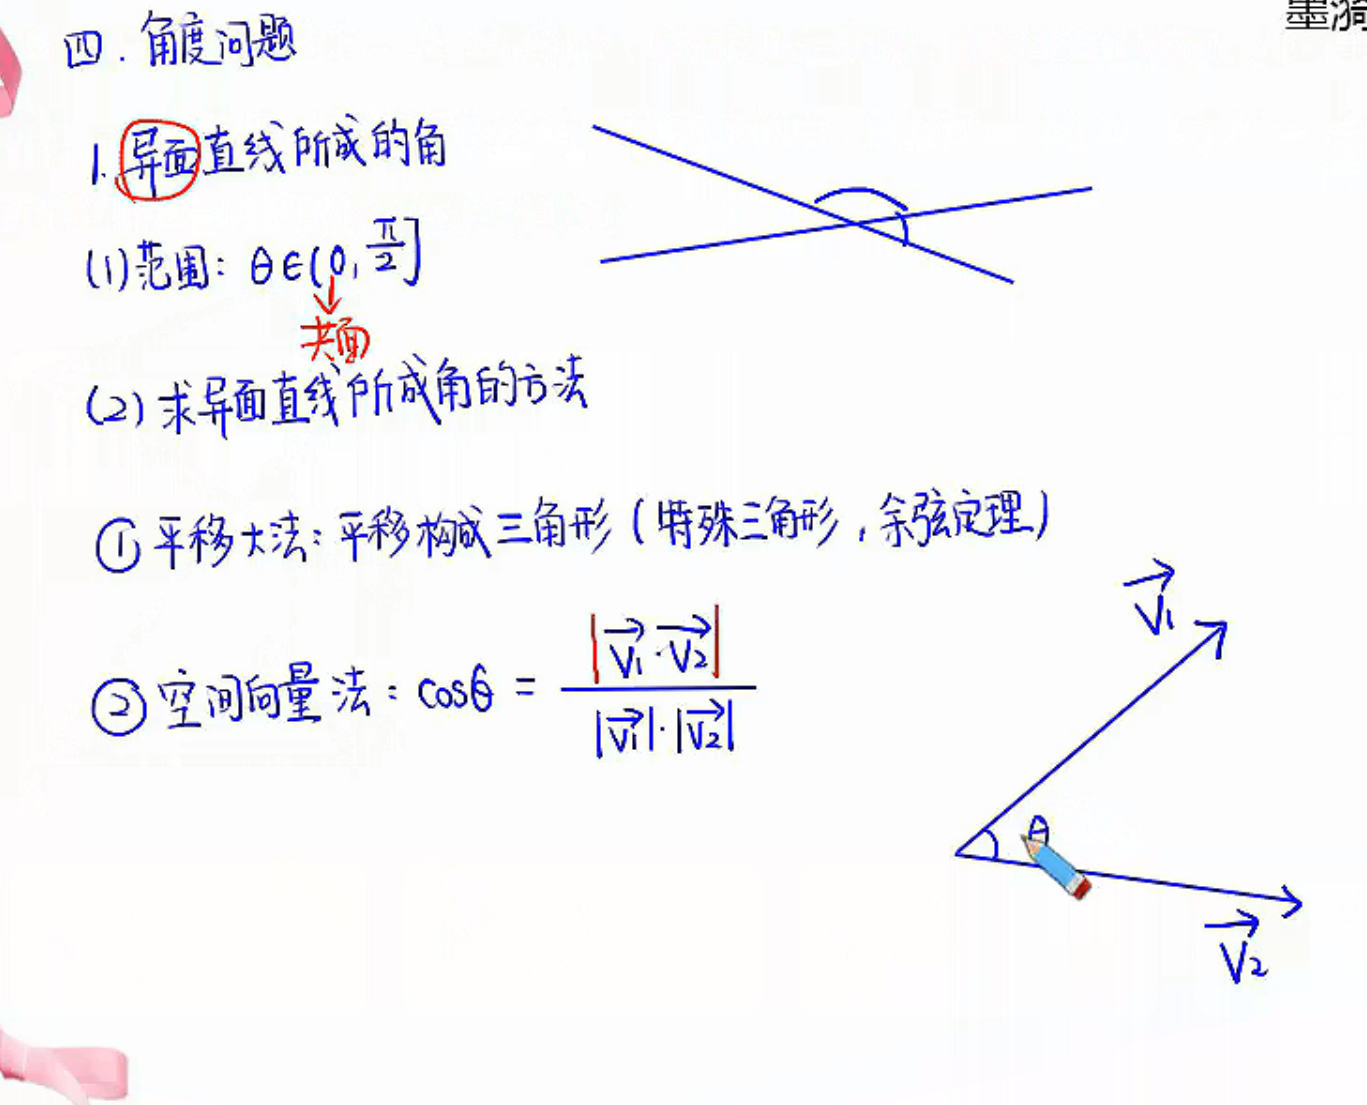 墨漪
四. 角度问题
1. 异面直线所成的角
(1) 范围: θ∈(0, π/2]
共面
(2) 求异面直线所成角的方法
① 平移大法: 平移构成三角形 (特殊三角形, 余弦定理)
② 空间向量法: cosθ = |V₁·V₂| / |V₁|·|V₂|
V₁
θ
V₂